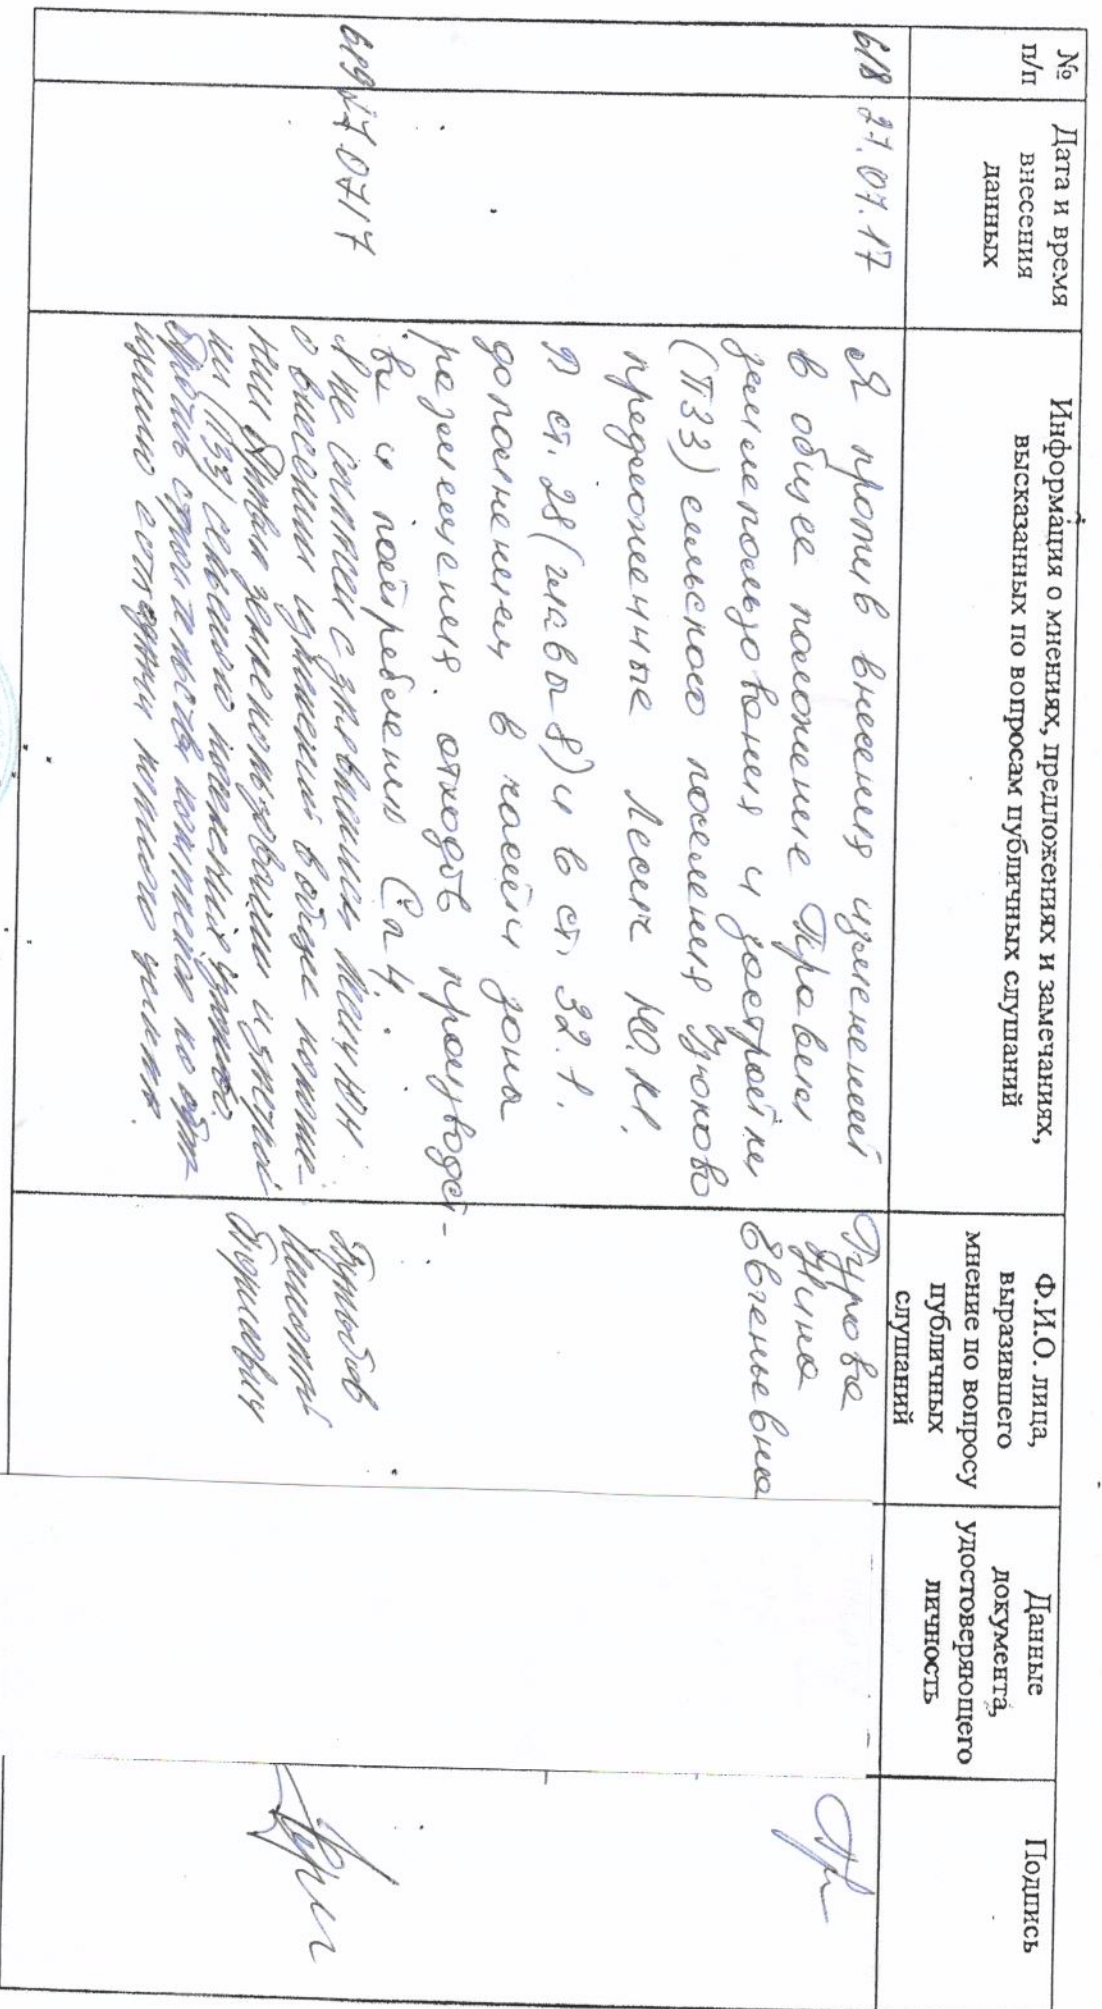 №
п/п
Дата и время
внесения
данных
Информация о мнениях, предложениях и замечаниях,
высказанных по вопросам публичных слушаний
Ф.И.О. лица,
выразившего
мнение по вопросу
публичных
слушаний
Данные
документа,
удостоверяющего
личность
Подпись
618
27.07.17
Я против внесения изменений
в общее положение Правил
землепользования и застройки
(ПЗЗ) сельского поселения Узюково
предложенные Лесин Ю.Н.
в ст. 28 (главы 8) и в ст. 32.1.
дополнением в части зона
размещения отходов производст-
ва и потребления Сп4.
Гурова
Нина
Евгеньевна
619
27 07 17
Я не согласен с
о внесении изменений в общее положе-
ние Правил землепользования и застрой
ки (ПЗЗ) сельского поселения Узюково
против строительства комплекса по обра-
Борисович